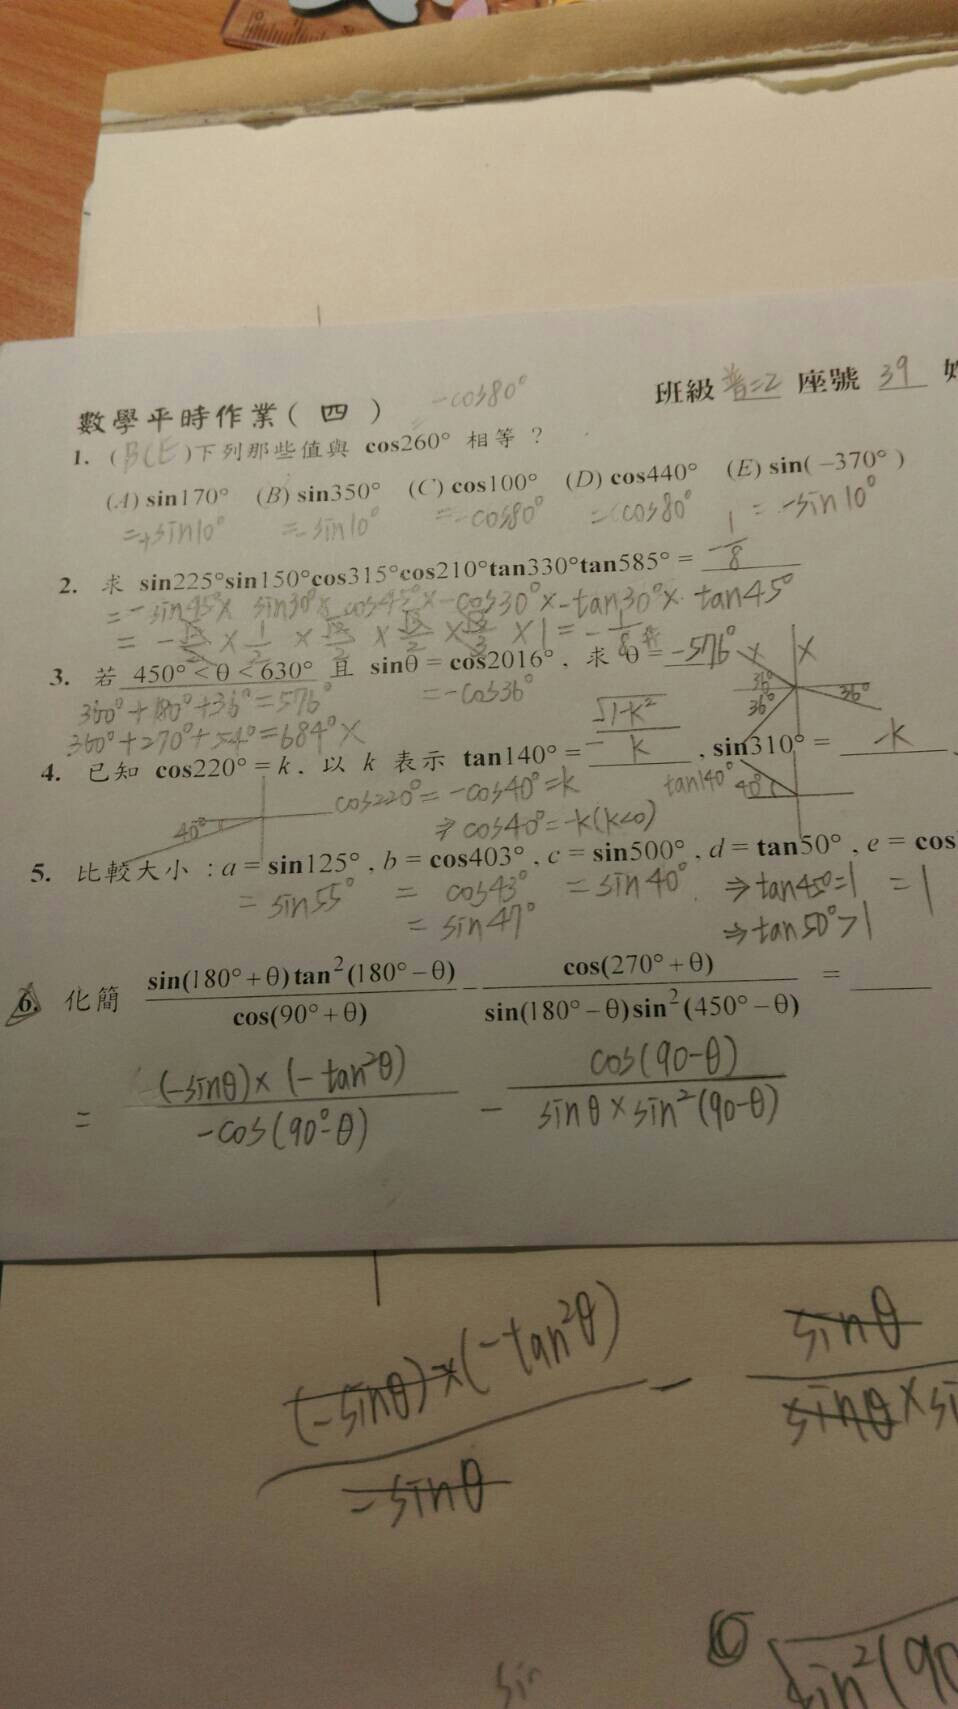 數學平時作業(四)
-cos80°
班級 普二2 座號 39 姓
1. (BCE)下列那些值與 cos260° 相等？
(A) sin170° (B) sin350° (C) cos100° (D) cos440° (E) sin(-370°)
=+sin10° =-sin10° =-cos80° =cos80° =-sin10°
2. 求 sin225°sin150°cos315°cos210°tan330°tan585° = -1/8
=-sin45°× sin30°× cos45°×-cos30°×-tan30°× tan45°
= -√2/2 × 1/2 × √2/2 × √3/2 × √3/3 ×1 = -1/8
3. 若 450° < θ < 630° 且 sinθ = cos2016°, 求 θ = -576°
=-cos36°
360°+180°+36°=576°
360°+270°+54°=684° X
X X
36° 36° 36°
4. 已知 cos220° = k, 以 k 表示 tan140° = -√1-k²/k, sin310° = -k
cos220°=-cos40°=k
⇒cos40°=-k(k<0)
40°
tan140° 40°
5. 比較大小：a = sin125°, b = cos403°, c = sin500°, d = tan50°, e = cos
=sin55° = cos43° =sin40° ⇒tan45°=1 =1
= sin47° ⇒tan50°>1
6. 化簡 sin(180°+θ)tan²(180°-θ)/cos(90°+θ) - cos(270°+θ)/sin(180°-θ)sin²(450°-θ) =
= (-sinθ)×(-tan²θ)/-cos(90°-θ) - cos(90-θ)/sinθ×sin²(90-θ)
(-sinθ)×(-tan²θ)/-sinθ - sinθ/sinθ×si
sin²(90
sin